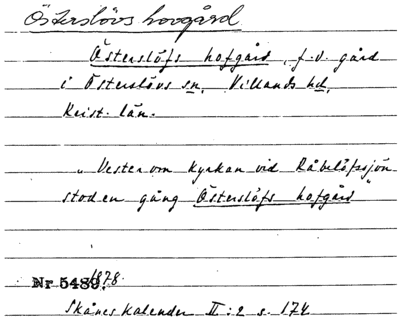 Österslövs hovgård
Österslöfs hofgård, f.d. gård
i Österslövs sn, Villands hd,
Krist. län.
„Vester om kyrkan vid Råbelöfssjön
stod en gång Österslöfs hofgård"
Nr 5489. 1878.
Skånes Kalender II:2 s. 174